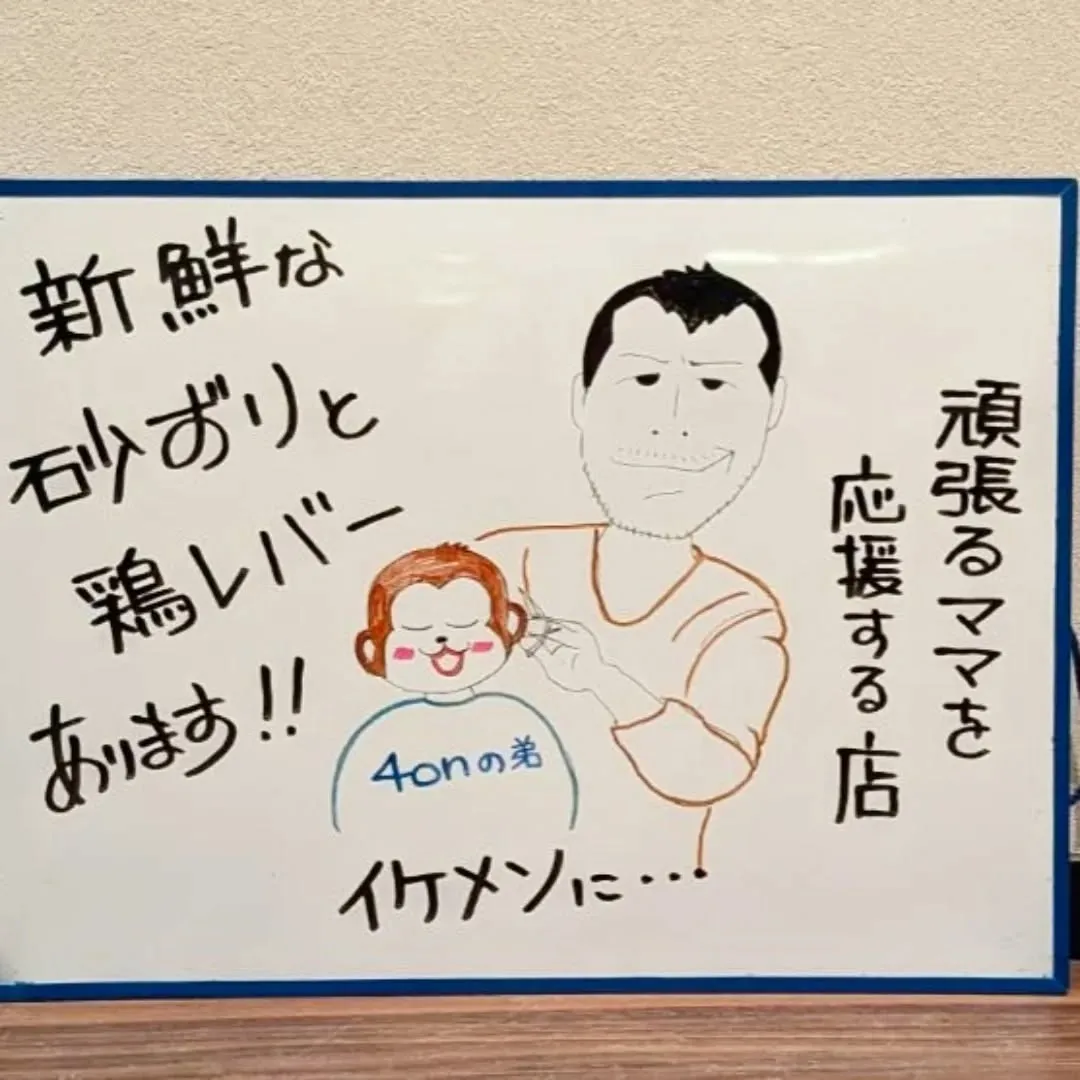 新鮮な
砂ずりと
鶏レバー
あります!!
頑張るママを
応援する店
4onの弟
イケメンに…